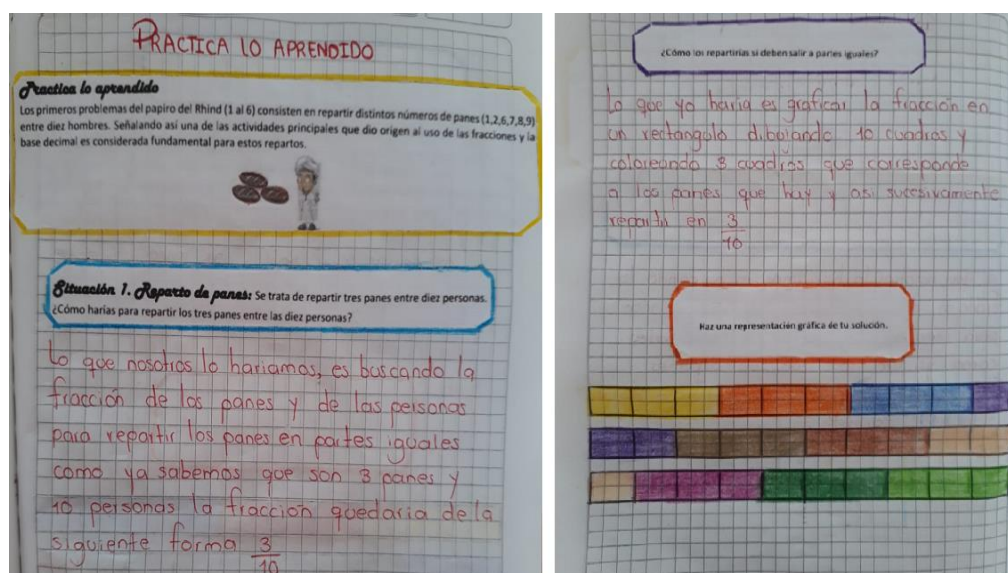 PRACTICA LO APRENDIDO
Practica lo aprendido
Los primeros problemas del papiro del Rhind (1 al 6) consisten en repartir distintos números de panes (1,2,6,7,8,9)
entre diez hombres. Señalando así una de las actividades principales que dio origen al uso de las fracciones y la
base decimal es considerada fundamental para estos repartos.
Situación 1. Reparto de panes: Se trata de repartir tres panes entre diez personas.
¿Cómo harías para repartir los tres panes entre las diez personas?
Lo que nosotros lo hariamos, es buscando la
fracción de los panes y de las personas
para repartir los panes en partes iguales
como ya sabemos que son 3 panes y
10 personas la fracción quedaria de la
siguiente forma 3/10
¿Cómo los repartirías si deben salir a partes iguales?
Lo que yo haria es graficar la fracción en
un rectangulo dibujando 10 cuadros y
coloreando 3 cuadros que corresponde
a los panes que hay y asi sucesivamente
repartir en 3/10
Haz una representación gráfica de tu solución.